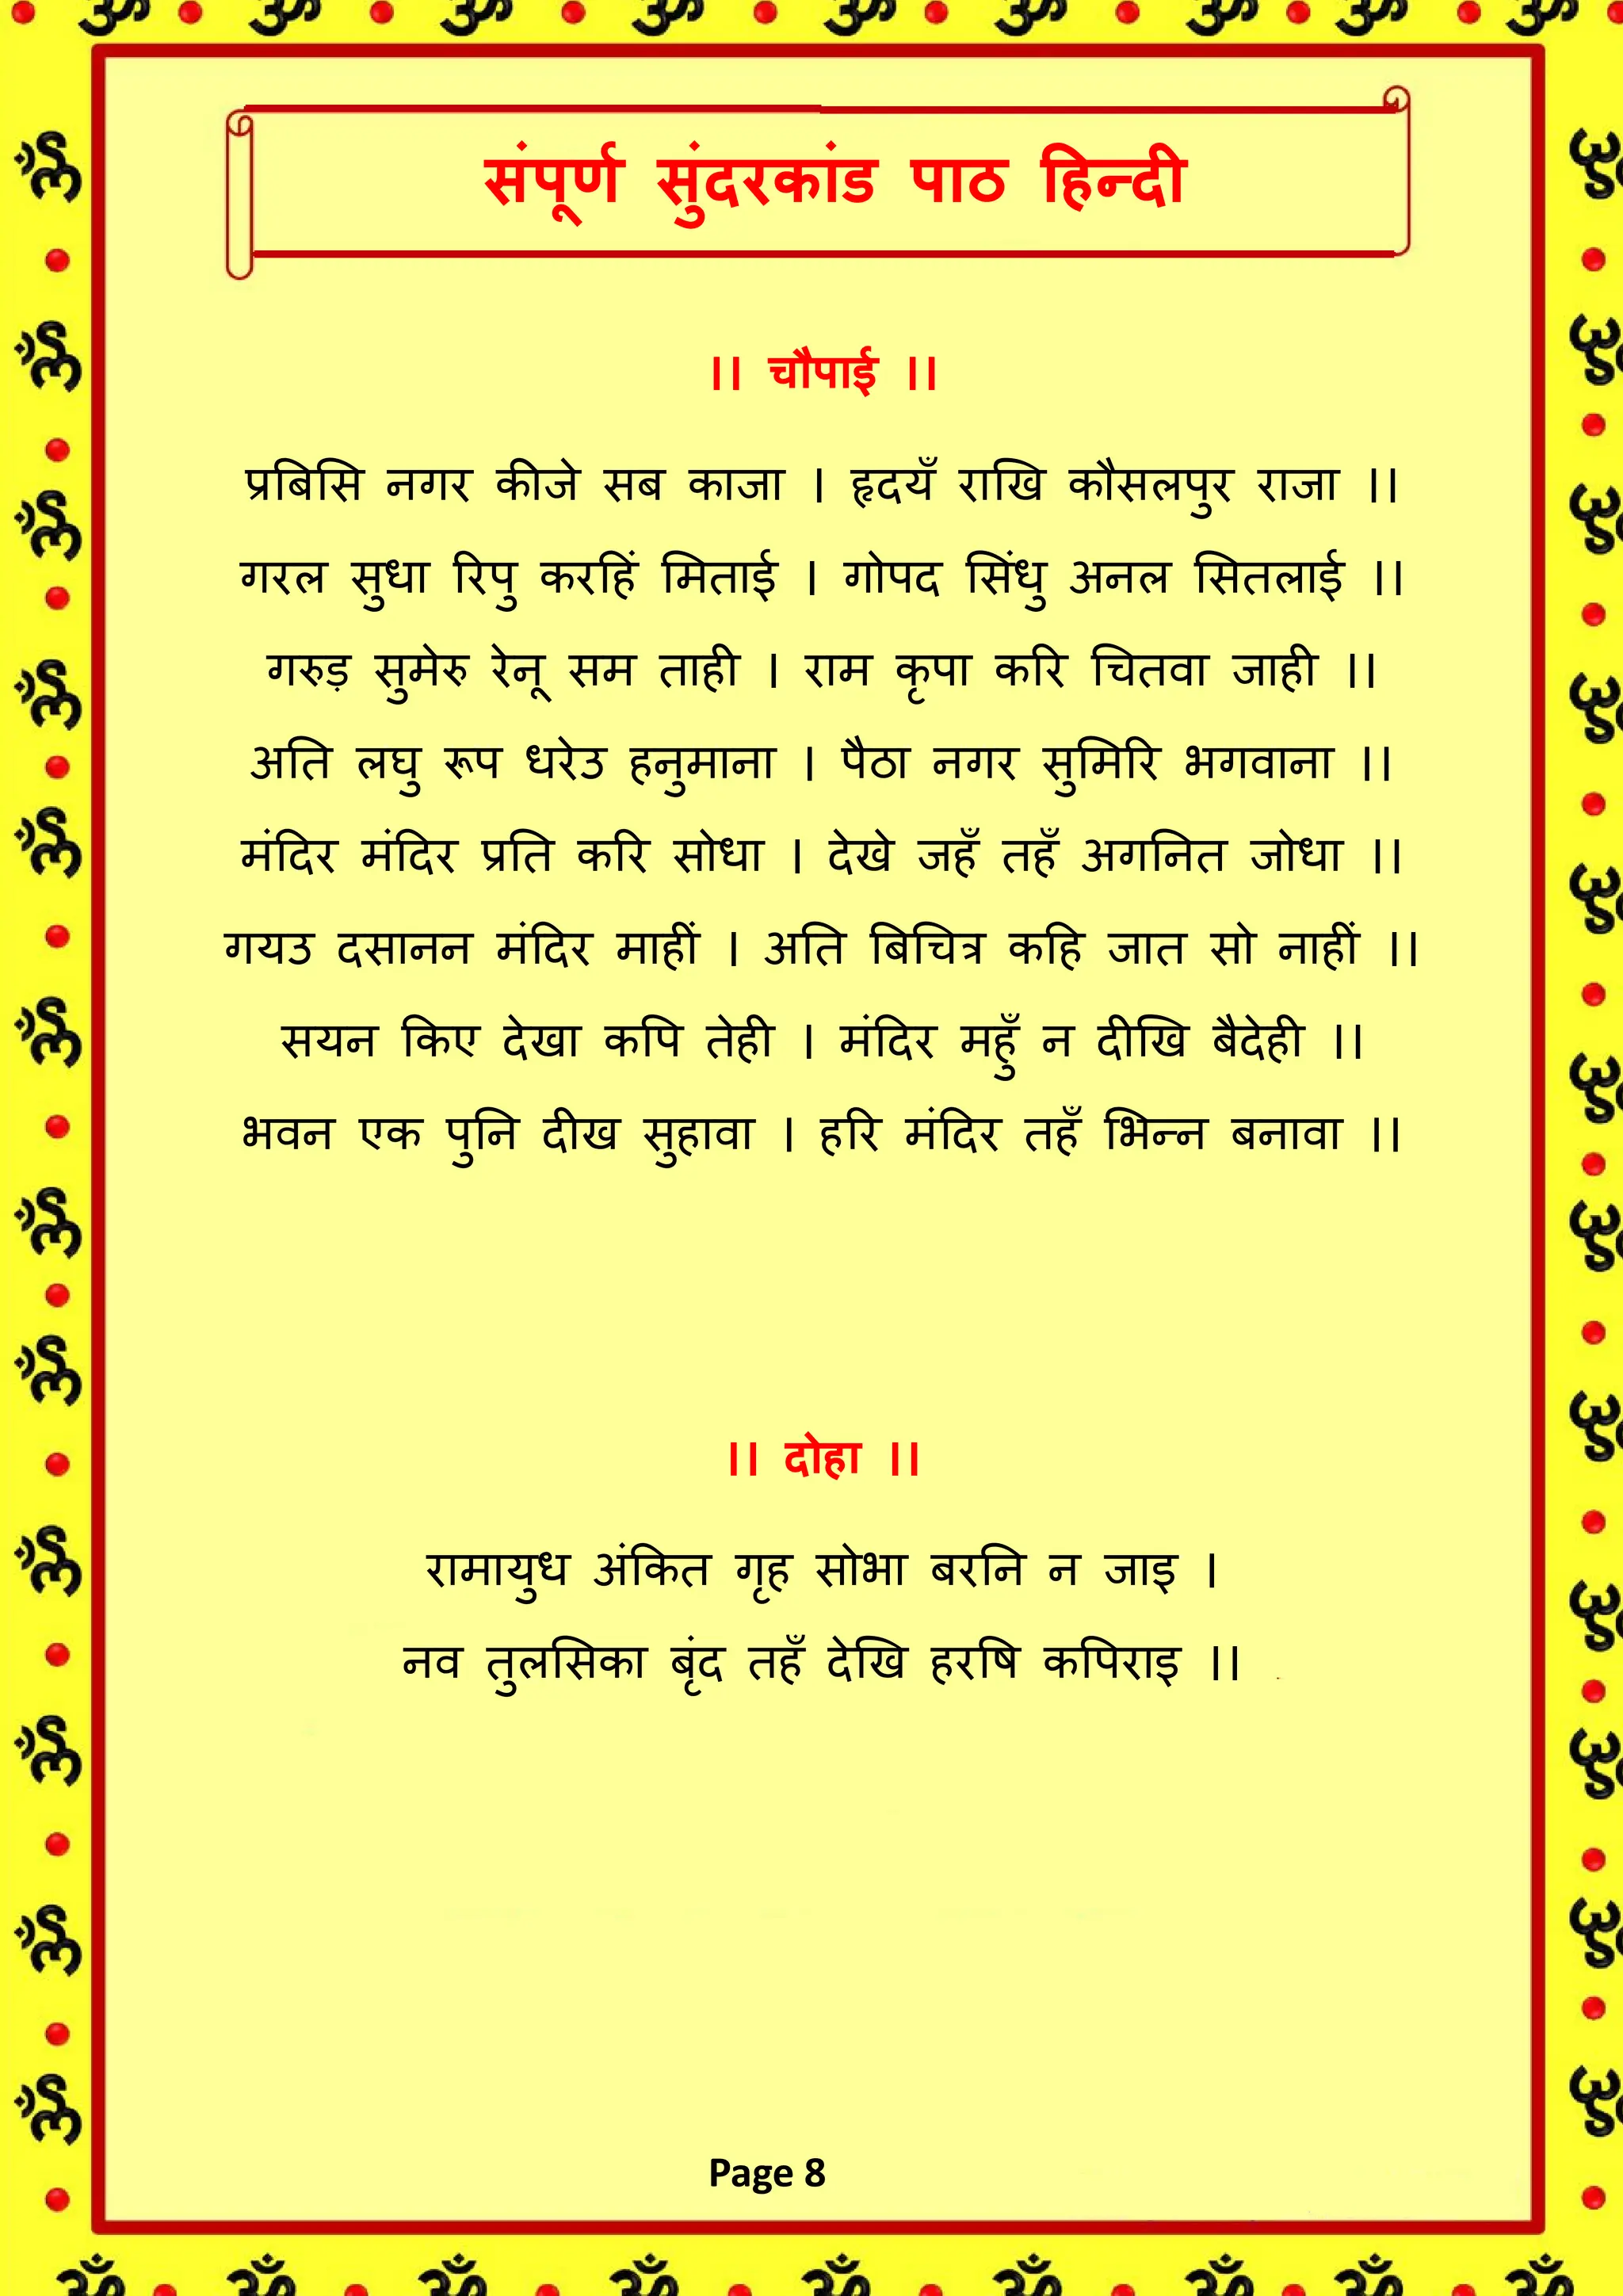 संपूर्ण सुंदरकांड पाठ हिन्दी
।। चौपाई ।।
प्रबिसि नगर कीजे सब काजा । हृदयँ राखि कौसलपुर राजा ।।
गरल सुधा रिपु करहिं मिताई । गोपद सिंधु अनल सितलाई ।।
गरुड़ सुमेरु रेनू सम ताही । राम कृपा करि चितवा जाही ।।
अति लघु रूप धरेउ हनुमाना । पैठा नगर सुमिरि भगवाना ।।
मंदिर मंदिर प्रति करि सोधा । देखे जहँ तहँ अगनित जोधा ।।
गयउ दसानन मंदिर माहीं । अति बिचित्र कहि जात सो नाहीं ।।
सयन किए देखा कपि तेही । मंदिर महुँ न दीखि बैदेही ।।
भवन एक पुनि दीख सुहावा । हरि मंदिर तहँ भिन्न बनावा ।।
।। दोहा ।।
रामायुध अंकित गृह सोभा बरनि न जाइ ।
नव तुलसिका बृंद तहँ देखि हरषि कपिराइ ।।
Page 8